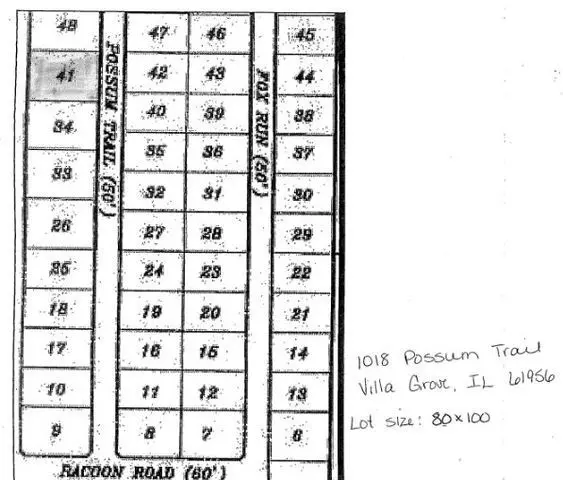 48 47 46 45
41 42 43 44
34 40 39 38
33 35 36 37
32 31 30
26 27 28 29
25 24 23 22
18 19 20 21
17 16 15 14
10 11 12 13
9 8 7 6
POSSUM TRAIL (50')
FOX RUN (50')
RACOON ROAD (60')
1018 Possum Trail
Villa Grove, IL 61956
Lot size: 80x100